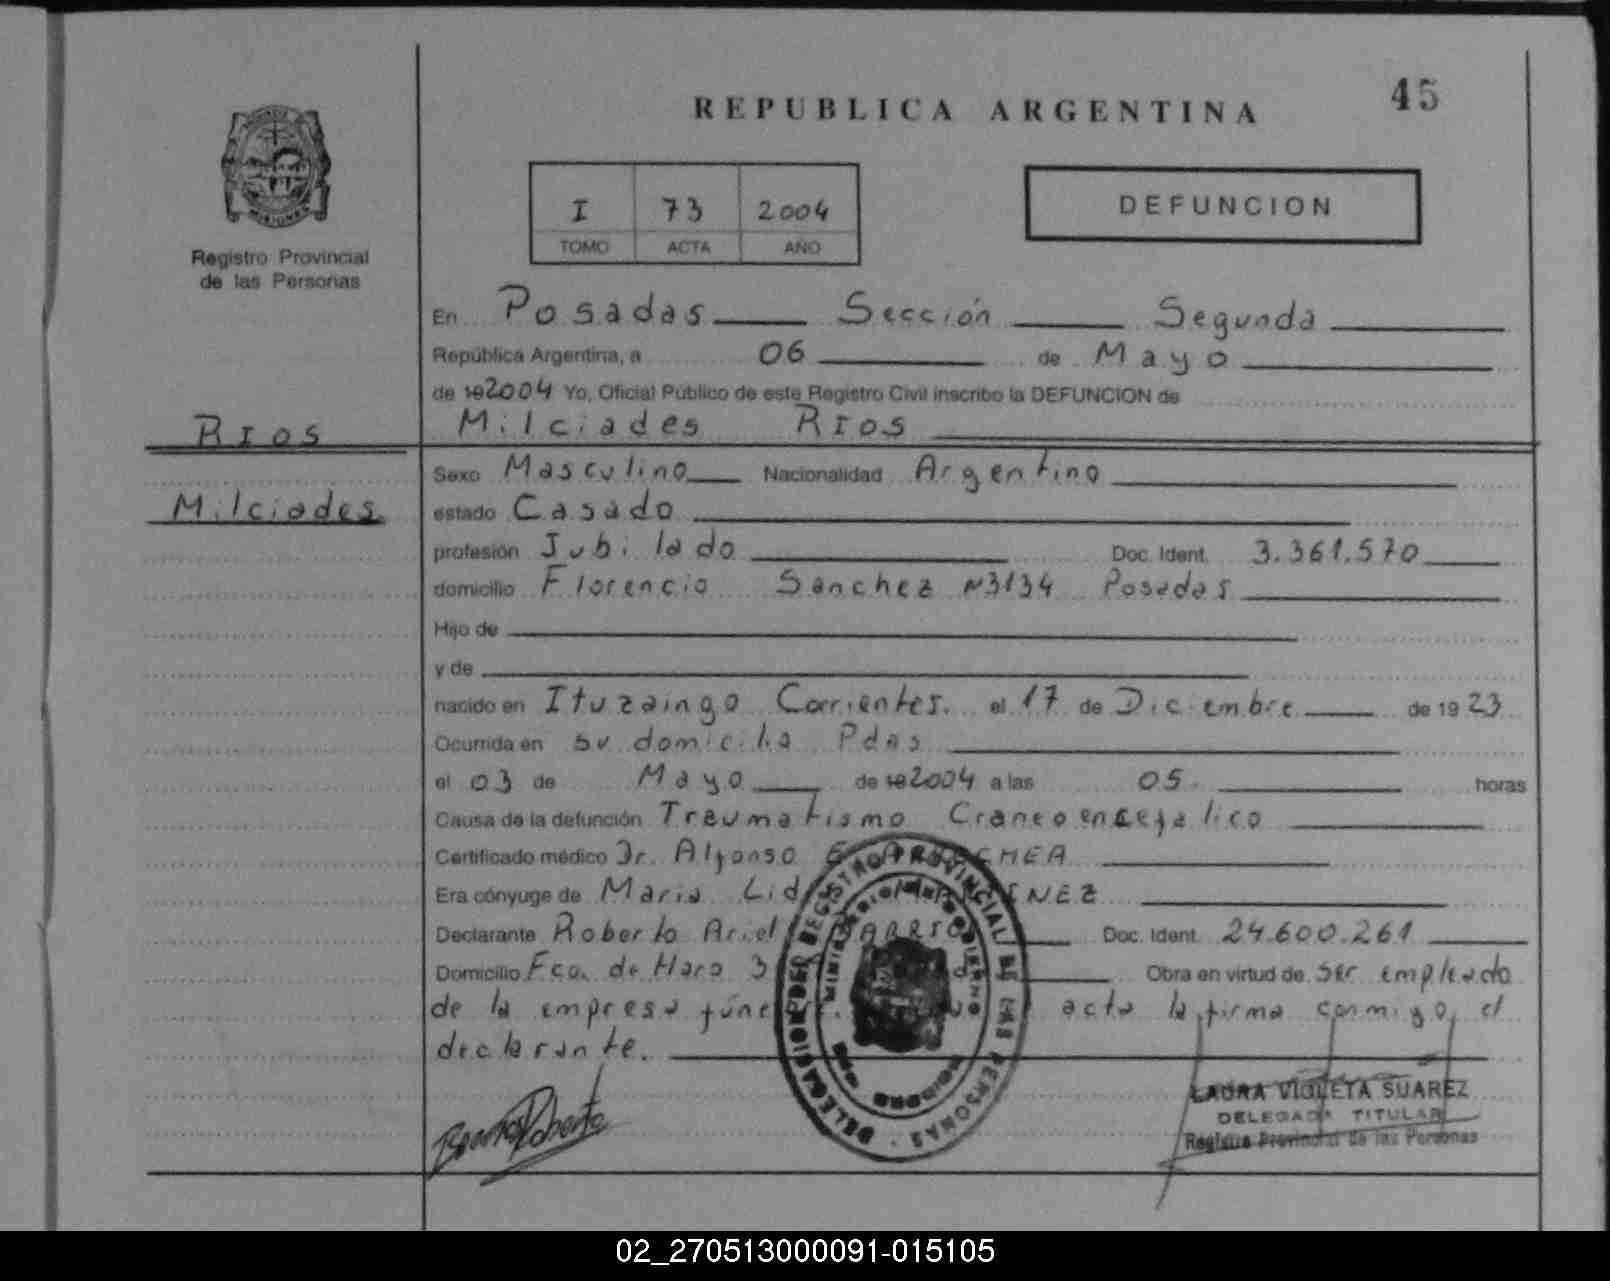 45
REPUBLICA ARGENTINA
I 73 2004
TOMO ACTA AÑO
DEFUNCION
MISIONES
Registro Provincial
de las Personas
En Posadas Sección Segunda
República Argentina, a 06 de Mayo
de 19 2004 Yo, Oficial Público de este Registro Civil inscribo la DEFUNCION de
Rios
Milciades Rios
Sexo Masculino Nacionalidad Argentino
Milciades
estado Casado
profesión Jubilado Doc. Ident. 3.361.570
domicilio Florencio Sanchez Nº3134 Posadas
Hijo de
y de
nacido en Ituzaingo Corrientes. el 17 de Diciembre de 19 23
Ocurrida en su domicilio Pdas
el 03 de Mayo de 19 2004 a las 05 horas
Causa de la defunción Traumatismo Craneoencefalico
Certificado médico Dr. Alfonso
Era cónyuge de Maria
Declarante Roberto Ariel Doc. Ident. 24.600.261
Domicilio Fco. de Haro 3 Obra en virtud de ser empleado
de la empresa acta la firma conmigo, el
declarante.
DELEGACION DEL REGISTRO PROVINCIAL DE LAS PERSONAS
MINISTERIO DE GOBIERNO
LAURA VIOLETA SUAREZ
DELEGADA TITULAR
Registro Provincial de las Personas
02_270513000091-015105